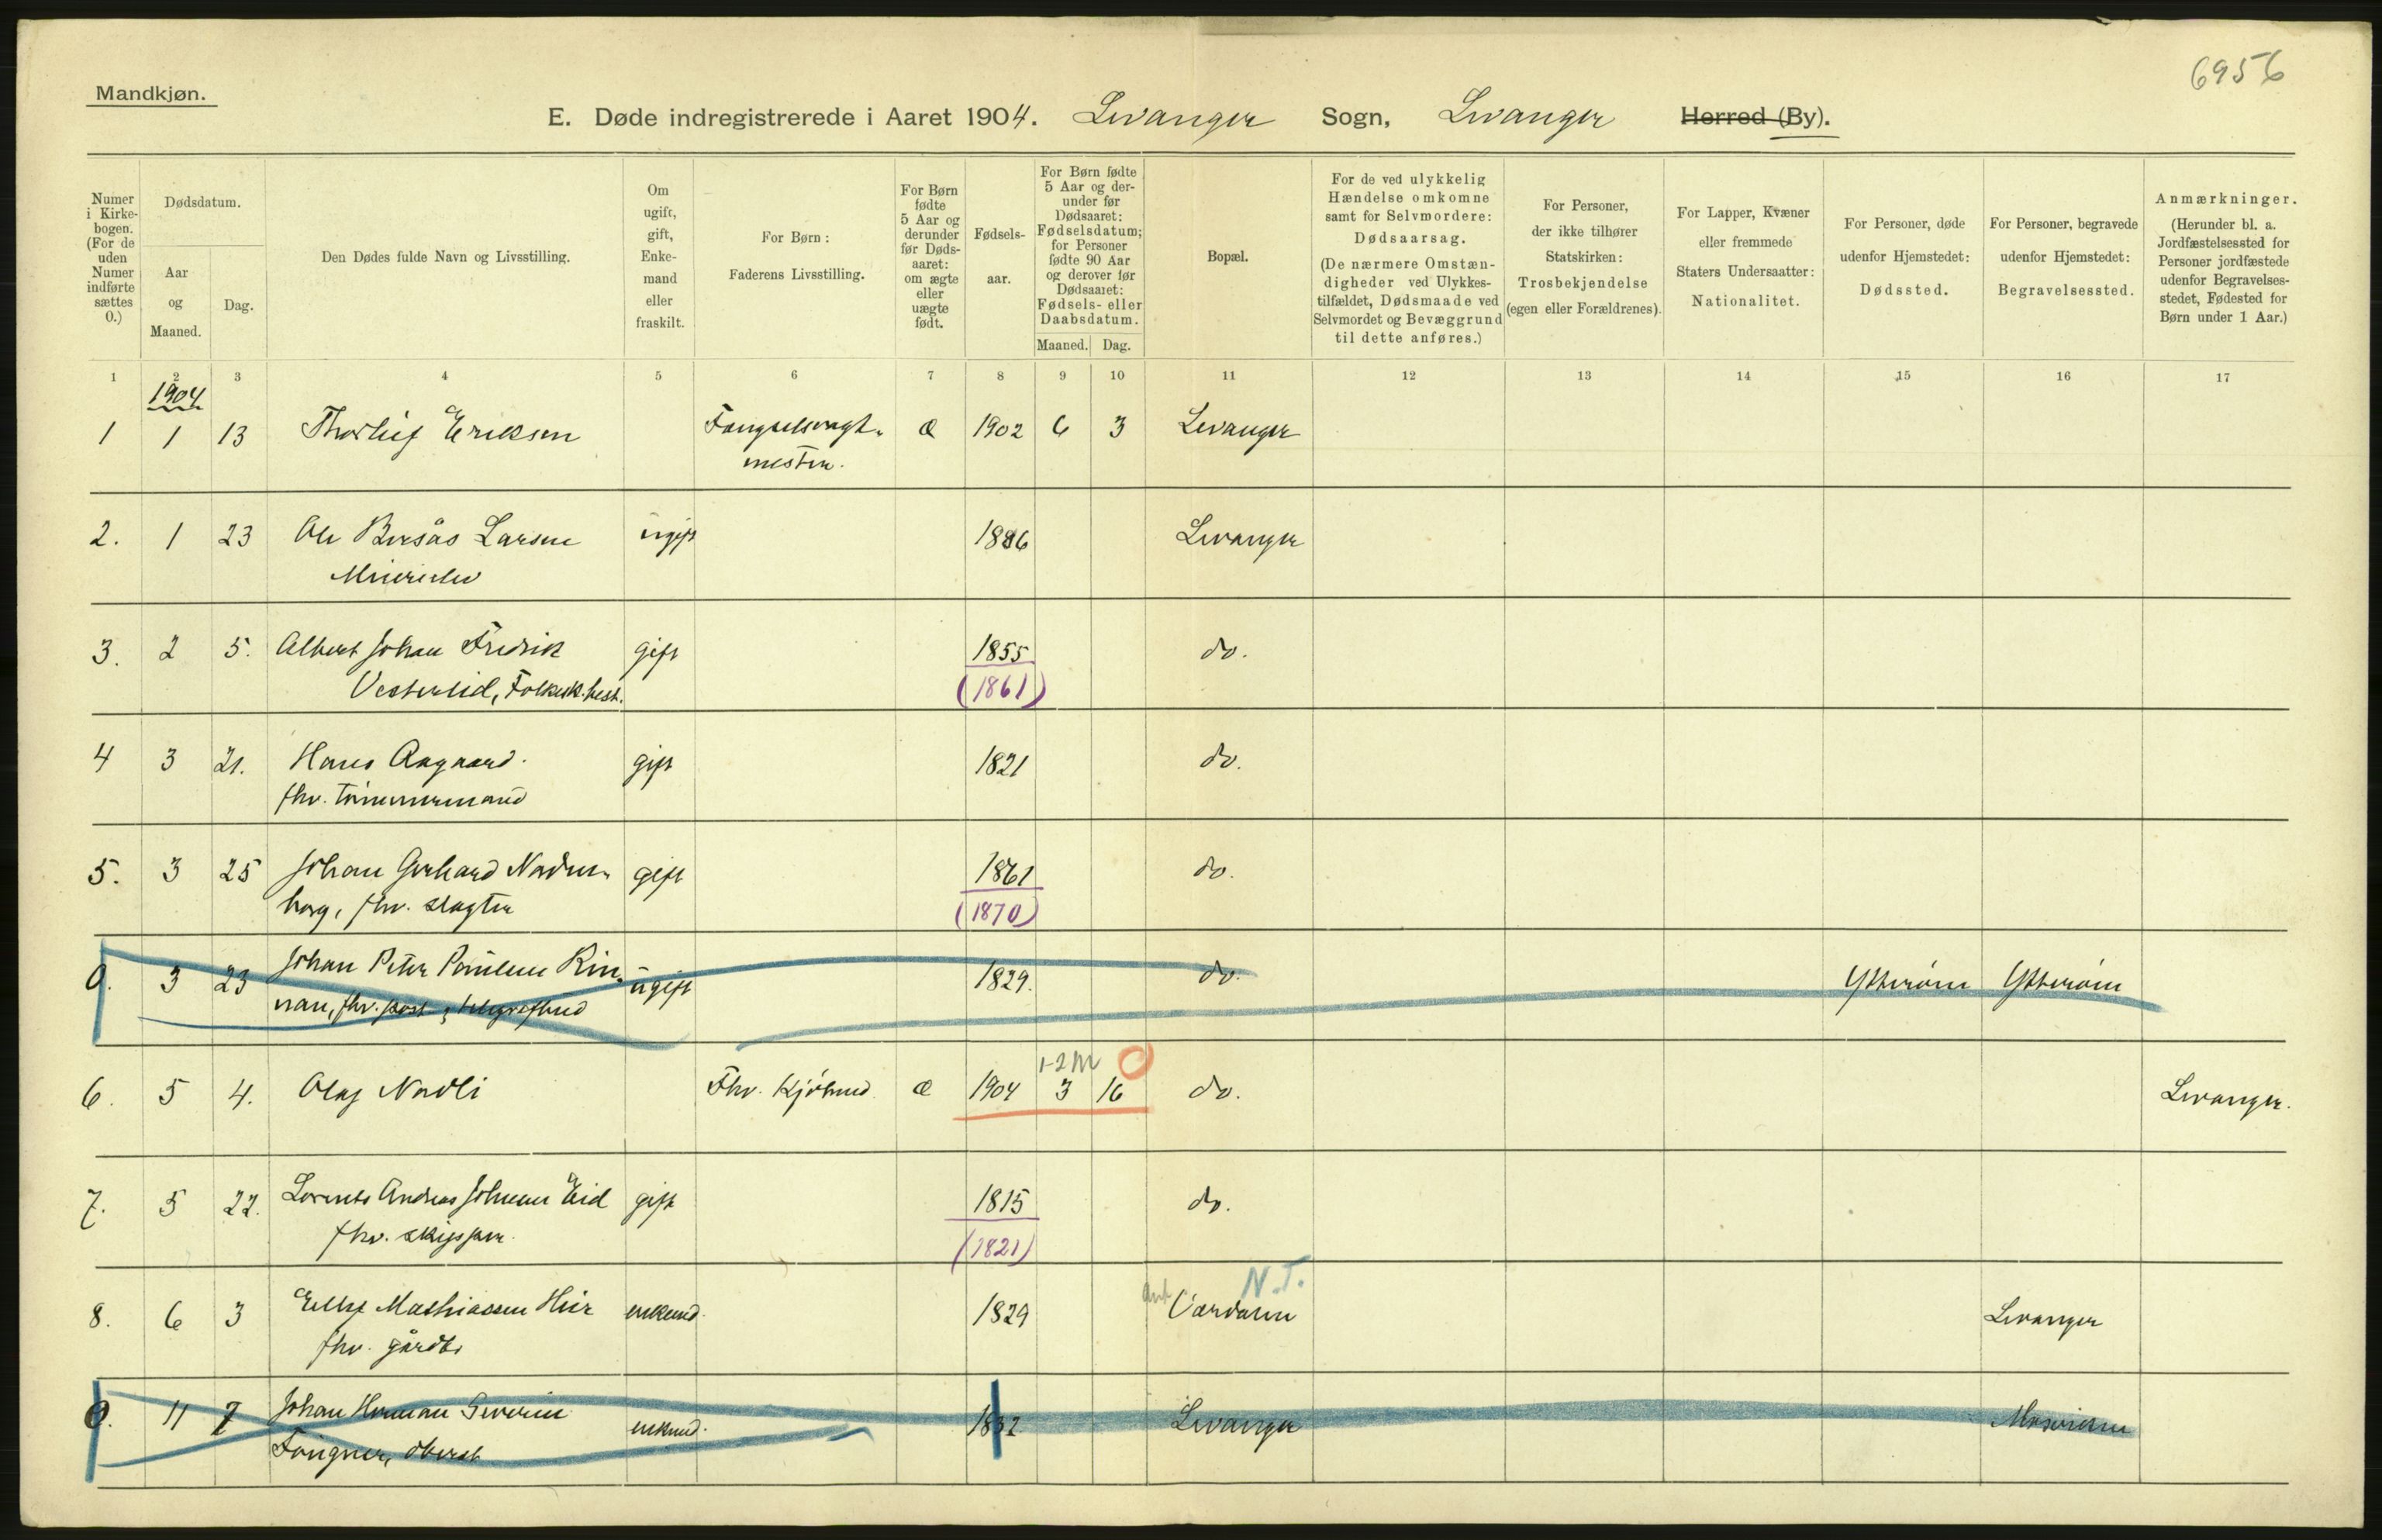 6956
Mandkjøn.
E. Døde indregistrerede i Aaret 1904. Levanger Sogn, Levanger Herred (By).
Numer i Kirke-bogen. (For de uden Numer indførte sættes 0.)
Dødsdatum.
Aar og Maaned.
Dag.
Den Dødes fulde Navn og Livsstilling.
Om ugift, gift, Enke-mand eller fraskilt.
For Børn:
Faderens Livsstilling.
For Børn fødte 5 Aar og derunder før Døds-aaret: om ægte eller uægte født.
Fødsels-aar.
For Børn fødte 5 Aar og der-under før Dødsaaret: Fødselsdatum; for Personer fødte 90 Aar og derover før Dødsaaret: Fødsels- eller Daabsdatum.
Maaned. Dag.
Bopæl.
For de ved ulykkelig Hændelse omkomne samt for Selvmordere: Dødsaarsag. (De nærmere Omstæn-digheder ved Ulykkes-tilfældet, Dødsmaade ved Selvmordet og Bevæggrund til dette anføres.)
For Personer, der ikke tilhører Statskirken: Trosbekjendelse (egen eller Forældrenes).
For Lapper, Kvæner eller fremmede Staters Undersaatter: Nationalitet.
For Personer, døde udenfor Hjemstedet: Dødssted.
For Personer, begravede udenfor Hjemstedet: Begravelsessted.
Anmærkninger. (Herunder bl. a. Jordfæstelsessted for Personer jordfæstede udenfor Begravelses-stedet, Fødested for Børn under 1 Aar.)
1 2 3 4 5 6 7 8 9 10 11 12 13 14 15 16 17
1904
1 1 13 Thorleif Eriksen Fængselsvagt- æ 1902 6 3 Levanger
mester.
2. 1 23 Ole Larsen ugift 1886 Levanger
Meierielev
3. 2 5. Albert Johan Fredrik gift 1855 do.
Vesterlid, Folkesk.best. (1861)
4 3 21. Hans Aagaard. gift 1821 do.
fhv. tømmermand
5. 3 25 Johan Gerhard Nordren- gift 1861 do.
borg, fhv. slagter (1870)
0. 3 23 Johan Peter Paulsen Rin- ugift 1829. do. Ytterøen Ytterøen
nan, fhv. post- & telegrafbud
1-2 M
6. 5 4. Olaf Nordli Fhv. Kjøbmd. æ 1904 3 16 do. Levanger.
7. 5 22. Lorents Andreas Johnsen Eid gift 1815 do.
fhv. skipper. (1821)
N.T.
8. 6 3 Ellef Mathiassen enkemd. 1829 ant Værdalen Levanger
fhv. gårdbr
0. 11 7 Johan Herman Severin enkmd. 1832 Levanger Mosviken
Fougner, oberst